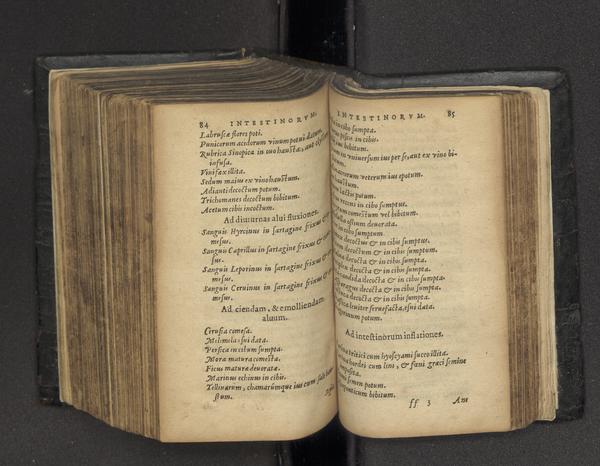 84 INTESTINORVM.
Labruscæ flores poti.
Punicorum acidorum vinum potui datum.
Rubrica Sinopica in ouo hausta, aut clystere
infusa.
Vini fæx illita.
Sedum maius ex vino haustum.
Adianti decoctum potum.
Trichomanes decoctum bibitum.
Acetum cibis incoctum.
Ad diuturnas alui fluxiones.
Sanguis Hyrcinus in sartagine frixus &
mesus.
Sanguis Caprillus in sartagine frixus &
sus.
Sanguis Leporinus in sartagine frixus &
mesus.
Sanguis Ceruinus in sartagine frixus &
mesus.
Ad ciendam, & emolliendam
aluum.
Cerusia comesa.
Melimela esui data.
Persica in cibum sumpta.
Mora matura comesta.
Ficus maturæ deuoratæ.
Marinus echinus in cibis.
Tellinarum, chamarúmque ius cum
stum.
INTESTINORVM. 85
in cibo sumpta.
piscis in cibis.
ius bibitum.
in vniuersum ius per se, aut ex vino bi-
veterum ius epotum.
haustum.
lactis potum.
recens in cibo sumptus.
comestum vel bibitum.
ostium deuorata.
in cibo sumptum
decoctus & in cibis sumptus.
decoctum & in cibis sumptum.
decocta & in cibis sumpta.
decocta & in cibis sumpta.
candida decocta & in cibis sumpta.
decocta & in cibis sumpta.
decocta & in cibis sumpta.
leuiter feruefacta, esui data.
potum.
Ad intestinorum inflationes.
tritici cum hyoscyami succo illita.
hordei cum lino, & fœni græci semine
semen potum.
bibitum.
ff 3 Am